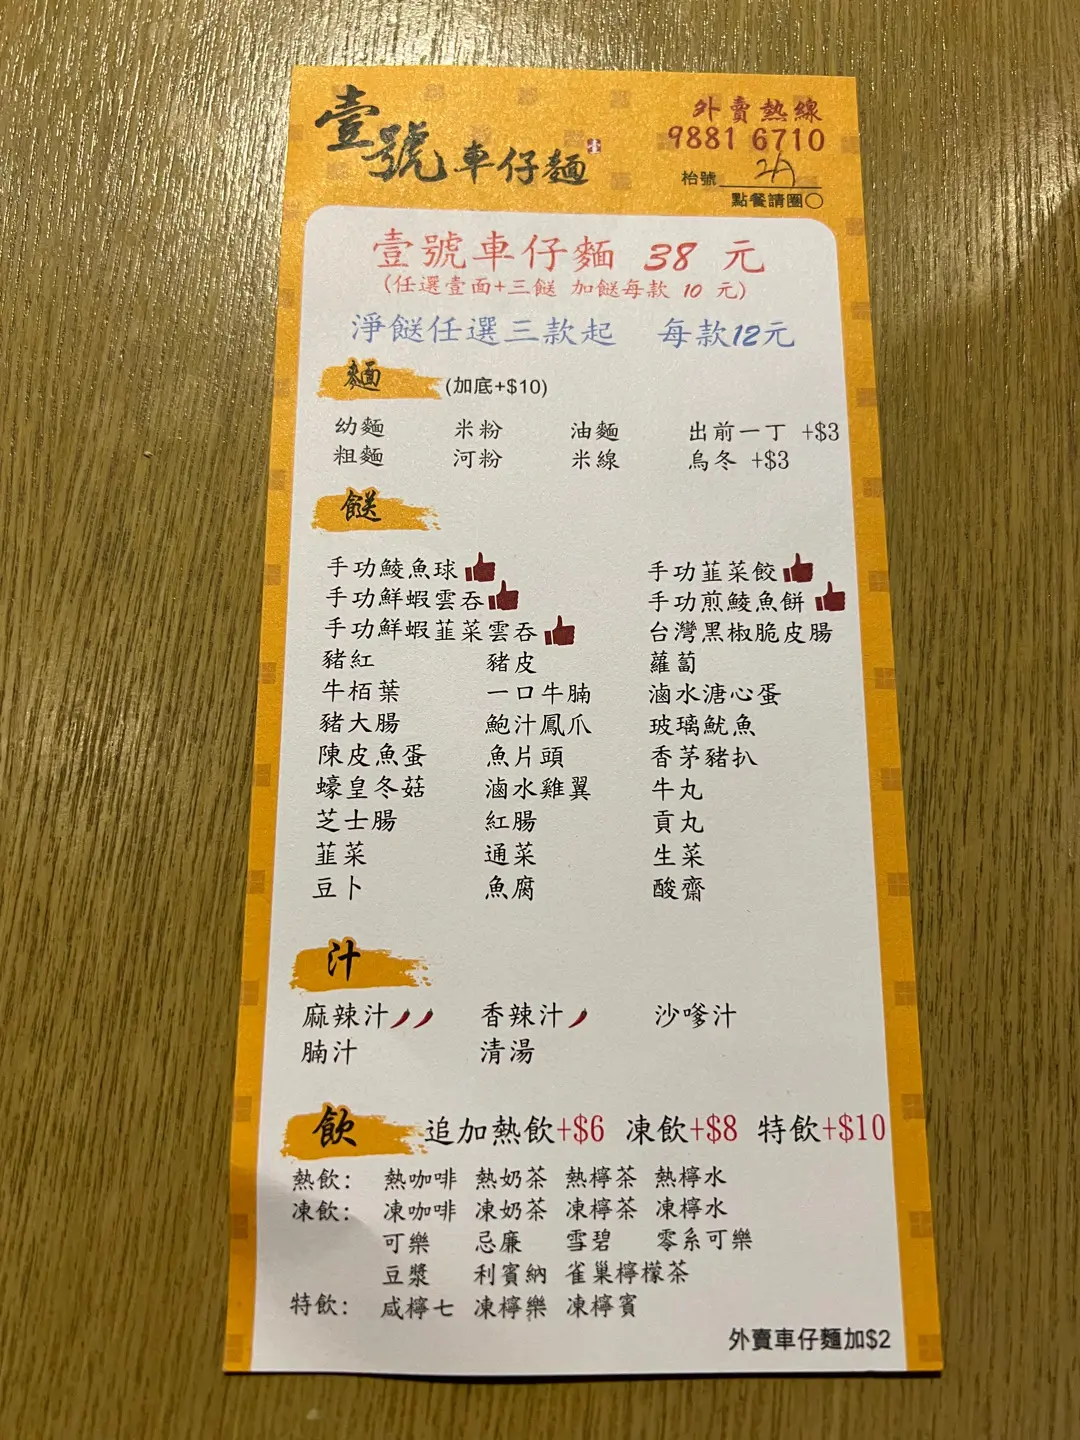 壹號車仔麵
外賣熱線
9881 6710
枱號 2A
點餐請圈○
壹號車仔麵 38 元
(任選壹面+三餸 加餸每款 10 元)
淨餸任選三款起 每款12元
麵 (加底+$10)
幼麵 米粉 油麵 出前一丁 +$3
粗麵 河粉 米線 烏冬 +$3
餸
手功鯪魚球 手功韮菜餃
手功鮮蝦雲吞 手功煎鯪魚餅
手功鮮蝦韮菜雲吞 台灣黑椒脆皮腸
豬紅 豬皮 蘿蔔
牛栢葉 一口牛腩 滷水溏心蛋
豬大腸 鮑汁鳳爪 玻璃魷魚
陳皮魚蛋 魚片頭 香茅豬扒
蠔皇冬菇 滷水雞翼 牛丸
芝士腸 紅腸 貢丸
韮菜 通菜 生菜
豆卜 魚腐 酸齋
汁
麻辣汁 香辣汁 沙嗲汁
腩汁 清湯
飲 追加熱飲+$6 凍飲+$8 特飲+$10
熱飲: 熱咖啡 熱奶茶 熱檸茶 熱檸水
凍飲: 凍咖啡 凍奶茶 凍檸茶 凍檸水
可樂 忌廉 雪碧 零系可樂
豆漿 利賓納 雀巢檸檬茶
特飲: 咸檸七 凍檸樂 凍檸賓
外賣車仔麵加$2